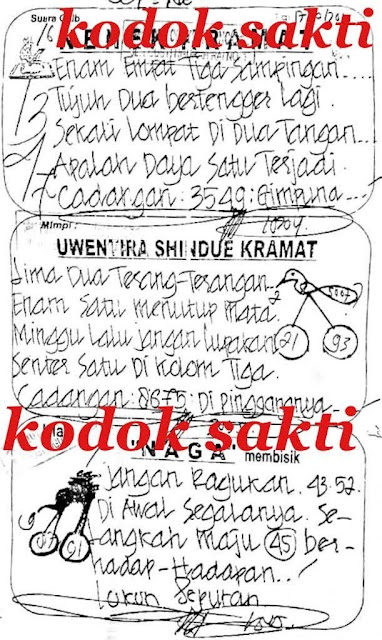 Suara Gaib
KERAMAT
kodok sakti
Enam Empat Tiga Sampingan....
Tujuh Dua bertengger lagi.
Sekali Lompat Di Dua Tangan...
Apalah Daya Satu Terjadi.
Cadangan: 3549:
Mimpi:
UWENTIRA SHINDUE KRAMAT
Lima Dua Terang-Terangan
Enam Satu menutup Mata
Minggu Lalu jangan lupakan
21 93
Senter Satu Di Kolom Tiga.
Cadangan: 8675: Di Pinggangnya
kodok sakti
"NAGA" membisik
Jangan Ragukan. 43.52.
Di Awal Segalanya. Se-
angkah Maju 45 ber-
hadap-Hadapan..
91
Seputan